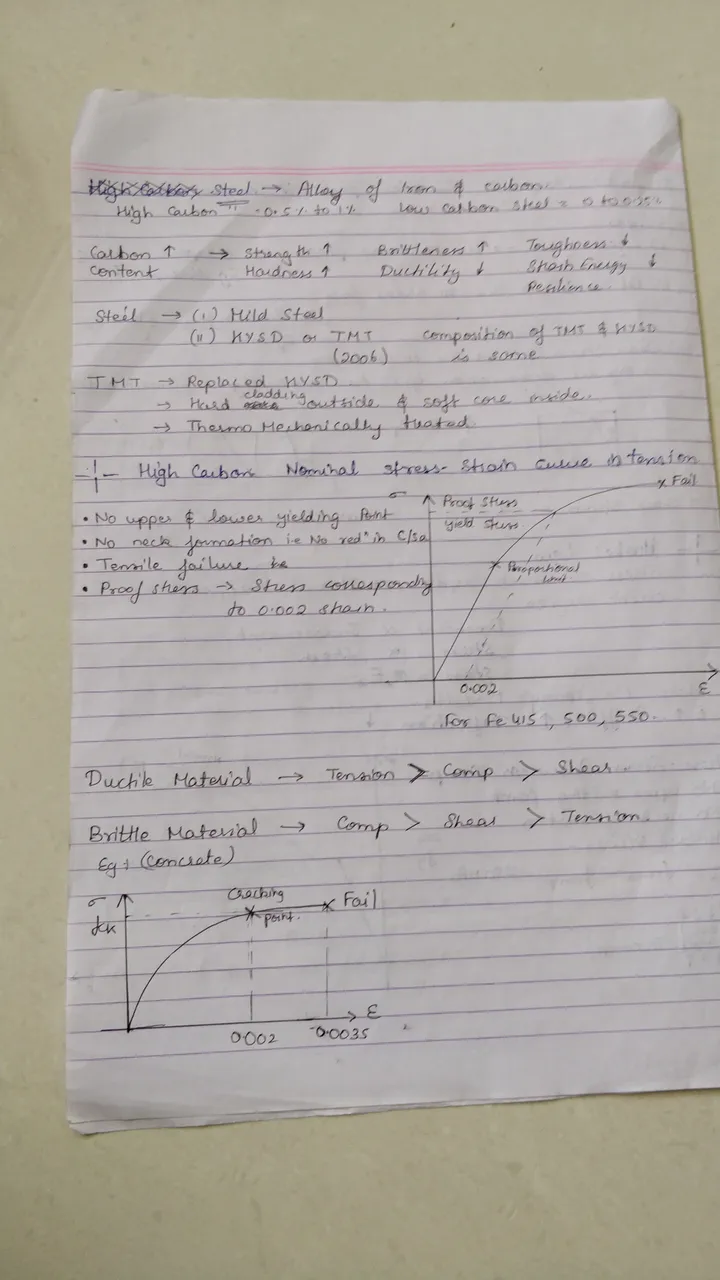 Steel → Alloy of Iron & carbon.
High Carbon " - 0.5% to 1% Low carbon steel = 0 to 0.25%
Carbon ↑ → Strength ↑ Brittleness ↑ Toughness ↓
Content Hardness ↑ Ductility ↓ Strain Energy ↓
Resilience.
Steel → (i) Mild Steel
(ii) HYSD or TMT composition of TMT & HYSD
(2006) is same
TMT → Replaced HYSD
cladding
→ Hard outside & soft core inside.
→ Thermo Mechanically treated.
High Carbon Nominal stress-strain curve in tension
σ Proof stress × Fail
• No upper & lower yielding Point yield stress
• No neck formation i.e No redⁿ in C/Sa
• Tensile failure Proportional
• Proof stress → Stress corresponding limit
to 0.002 strain.
0.002 ε
For Fe 415, 500, 550.
Ductile Material → Tension > Comp > Shear
Brittle Material → Comp > Shear > Tension.
Eg → (Concrete)
σ Cracking Fail
fck point.
ε
0.002 0.0035